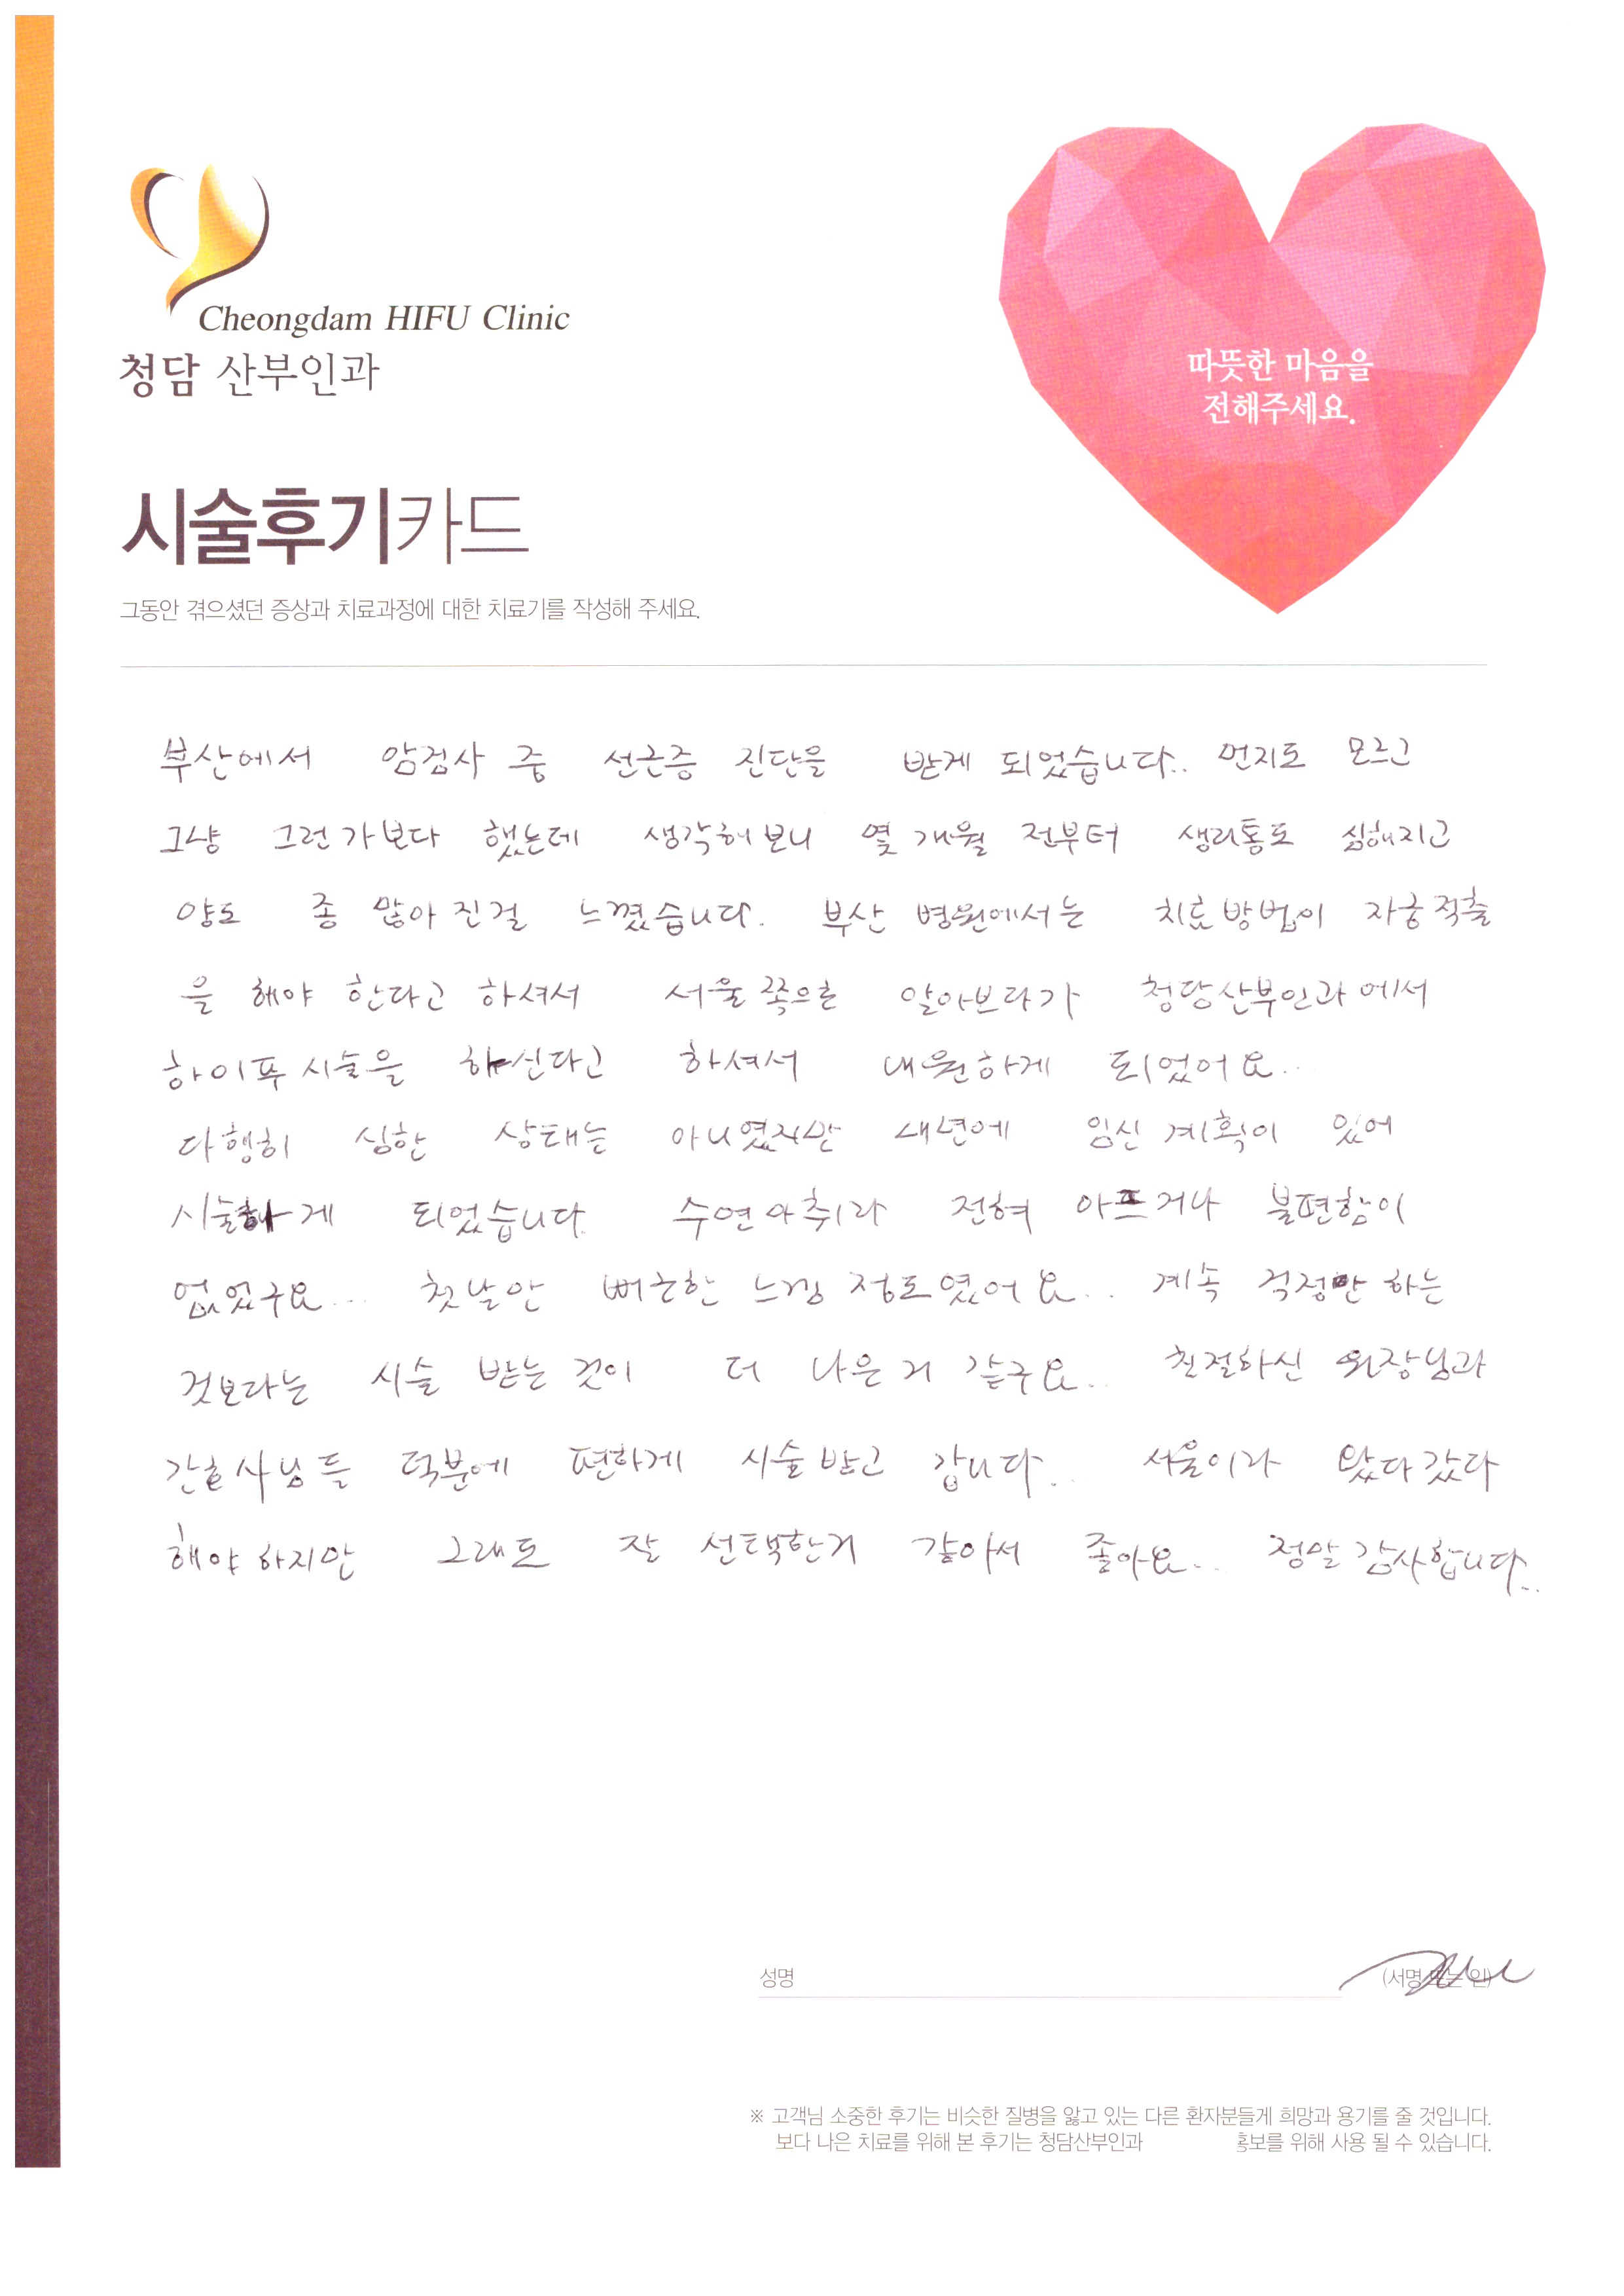 Cheongdam HIFU Clinic
청담 산부인과
따뜻한 마음을
전해주세요.
시술후기카드
그동안 겪으셨던 증상과 치료과정에 대한 치료기를 작성해 주세요.
부산에서 암검사 중 선근증 진단을 받게 되었습니다.. 먼지도 모르고
그냥 그런가보다 했는데 생각해보니 몇 개월 전부터 생리통도 심해지고
양도 좀 많아진걸 느꼈습니다. 부산 병원에서는 치료방법이 자궁적출
을 해야 한다고 하셔서 서울쪽으로 알아보다가 청담산부인과에서
하이푸시술을 하신다고 하셔서 내원하게 되었어요...
다행히 심한 상태는 아니였지만 내년에 임신계획이 있어
시술하게 되었습니다. 수면마취라 전혀 아프거나 불편함이
없었구요... 첫날만 뻐근한 느낌 정도였어요.. 계속 걱정만 하는
것보다는 시술 받는 것이 더 나은거 같구요.. 친절하신 원장님과
간호사님들 덕분에 편하게 시술받고 갑니다.. 서울이라 왔다갔다
해야하지만 그래도 잘 선택한거 같아서 좋아요.. 정말감사합니다..
성명 (서명 또는 인)
※ 고객님 소중한 후기는 비슷한 질병을 앓고 있는 다른 환자분들게 희망과 용기를 줄 것입니다.
보다 나은 치료를 위해 본 후기는 청담산부인과 홍보를 위해 사용 될 수 있습니다.